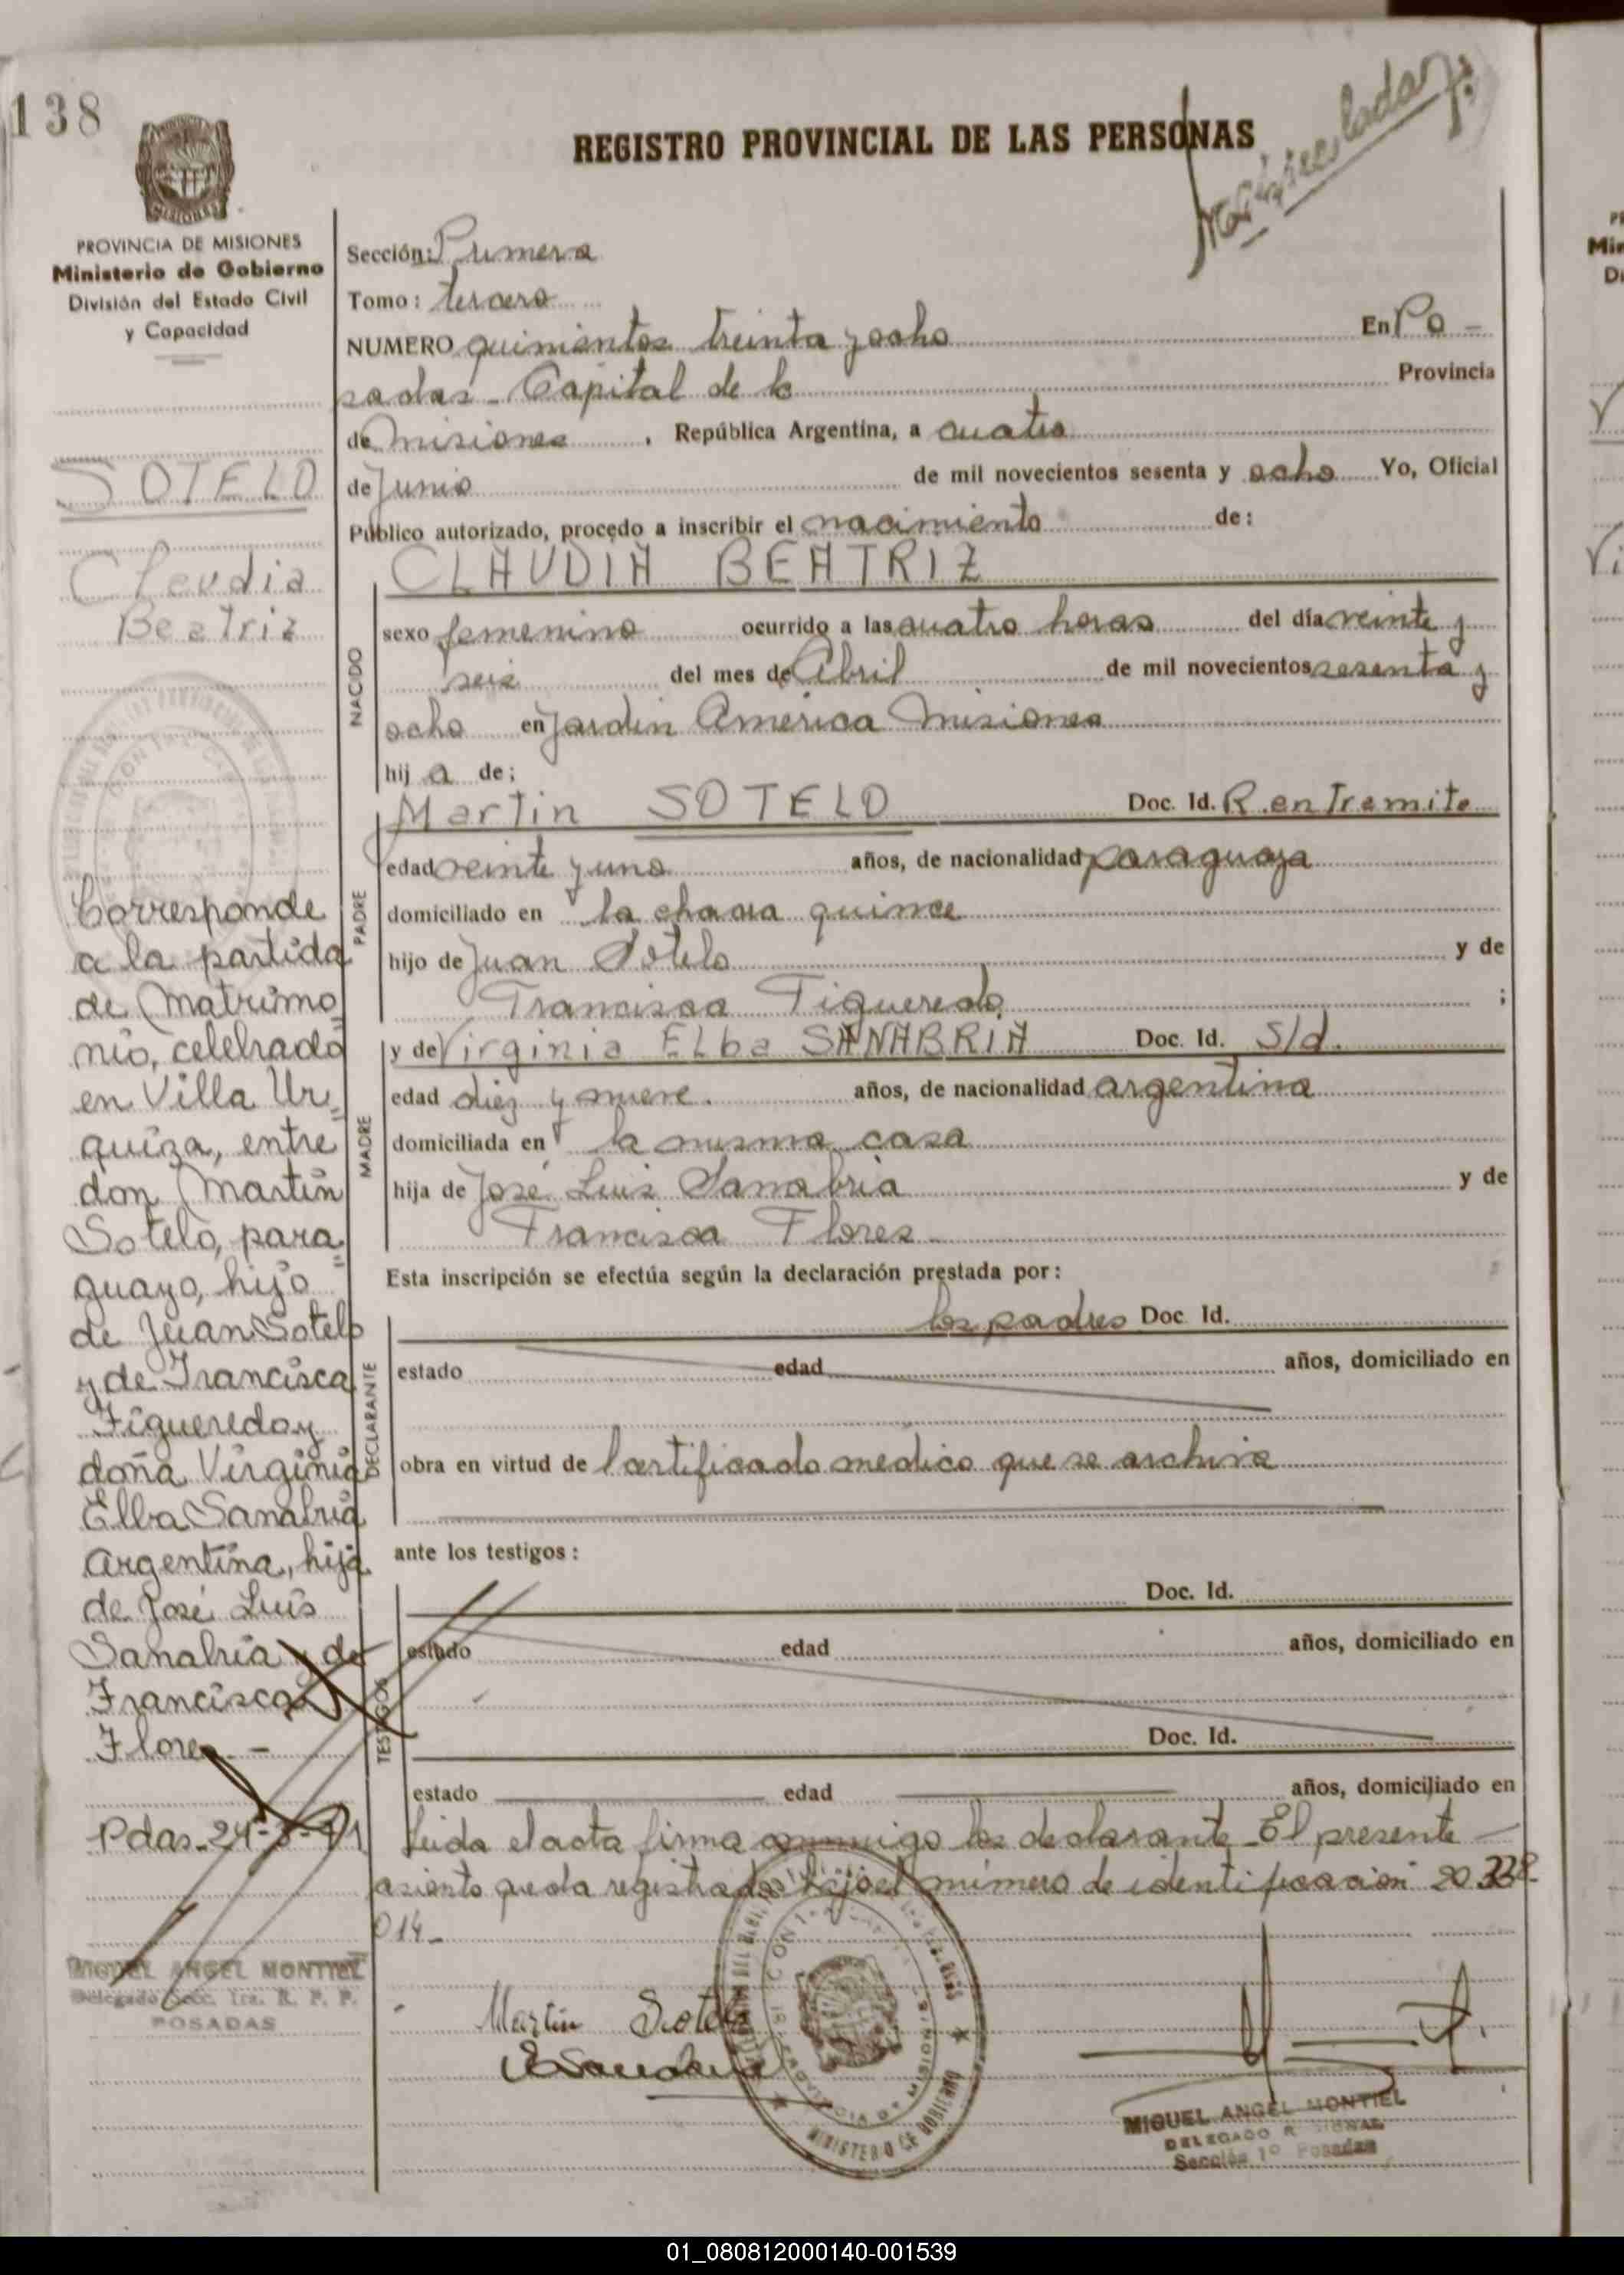 138
Macaneeladas
REGISTRO PROVINCIAL DE LAS PERSONAS
MISIONES
PROVINCIA DE MISIONES
Ministerio de Gobierno
División del Estado Civil
y Capacidad
SOTELO
Claudia
Beatriz
Corresponde
a la partida
de Matrimo
nio, celebrado
en Villa Ur=
quiza, entre
don Martin
Sotelo, para=
guayo, hijo
de Juan Sotelo
y de Francisca
Figueredo y
doña Virginia
Elba Sanabria
argentina, hija
de José Luis
Sanabria y de
Francisca
Flores. -
Pdas. 24-
MIGUEL ANGEL MONTIEL
Delegado Secc. 1ra. R. P. P.
POSADAS
Sección: Primera
Tomo: tercero
NUMERO quinientos treinta y ocho En Po -
sadas - Capital de la Provincia
de Misiones, República Argentina, a cuatro
de Junio de mil novecientos sesenta y ocho Yo, Oficial
Público autorizado, procedo a inscribir el nacimiento de:
NACIDO
CLAUDIA BEATRIZ
sexo femenino ocurrido a las cuatro horas del día veinte y
seis del mes de Abril de mil novecientos sesenta y
ocho en Jardin America Misiones
hij a de:
PADRE
Martin SOTELO Doc. Id. R. en Tramite
edad veinte y uno años, de nacionalidad paraguaya
domiciliado en la chacra quince
hijo de Juan Sotelo y de
Francisca Figueredo ;
MADRE
y de Virginia Elba SANABRIA Doc. Id. S/d.
edad diez y nueve. años, de nacionalidad argentina
domiciliada en la misma casa
hija de José Luis Sanabria y de
Francisca Flores
Esta inscripción se efectúa según la declaración prestada por:
DECLARANTE
los padres Doc. Id.
estado edad años, domiciliado en
obra en virtud de Certificado medico que se archiva
ante los testigos:
TESTIGOS
Doc. Id.
estado edad años, domiciliado en
Doc. Id.
estado edad años, domiciliado en
Leida el acta firma conmigo los declarante - El presente
asiento queda registrado bajo el número de identificación 20.328-
014-
Martin Sotelo
MINISTERIO DE GOBIERNO
MIGUEL ANGEL MONTIEL
DELEGADO
Sección 1º Posadas
01_080812000140-001539